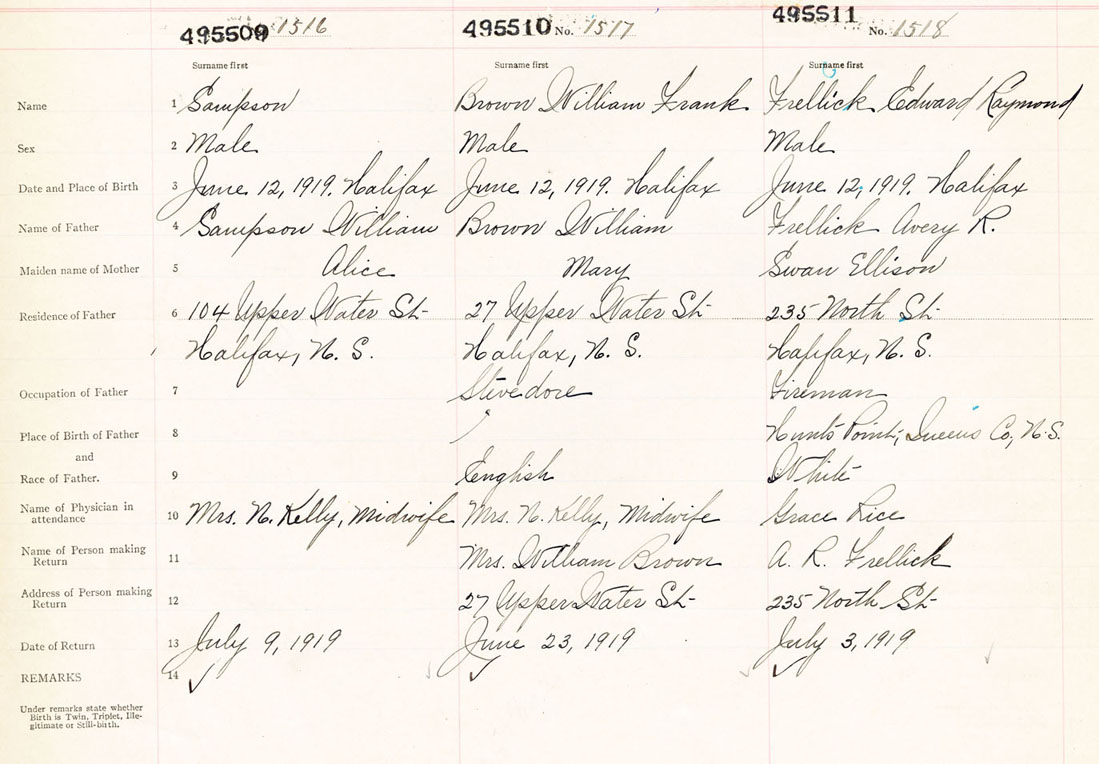 495509 1516 495510 No. 1517 495511 No. 1518
Surname first Surname first Surname first
Name 1 Sampson Brown William Frank Frellick Edward Raymond
Sex 2 Male Male Male
Date and Place of Birth 3 June 12, 1919. Halifax June 12, 1919. Halifax June 12, 1919. Halifax
Name of Father 4 Sampson William Brown William Frellick Avery R.
Maiden name of Mother 5 Alice Mary Swan Ellison
Residence of Father 6 104 Upper Water St- 27 Upper Water St- 235 North St-
Halifax, N. S. Halifax, N. S. Halifax, N. S.
Occupation of Father 7 Stevedore Fireman
Place of Birth of Father 8 Hunts Point, Queens Co, N.S.
and
Race of Father. 9 English White
Name of Physician in
attendance 10 Mrs. N. Kelly, Midwife Mrs. N. Kelly, Midwife Grace Rice
Name of Person making
Return 11 Mrs. William Brown A. R. Frellick
Address of Person making
Return 12 27 Upper Water St- 235 North St-
Date of Return 13 July 9, 1919 June 23, 1919 July 3, 1919
REMARKS 14
Under remarks state whether
Birth is Twin, Triplet, Ille-
gitimate or Still-birth.